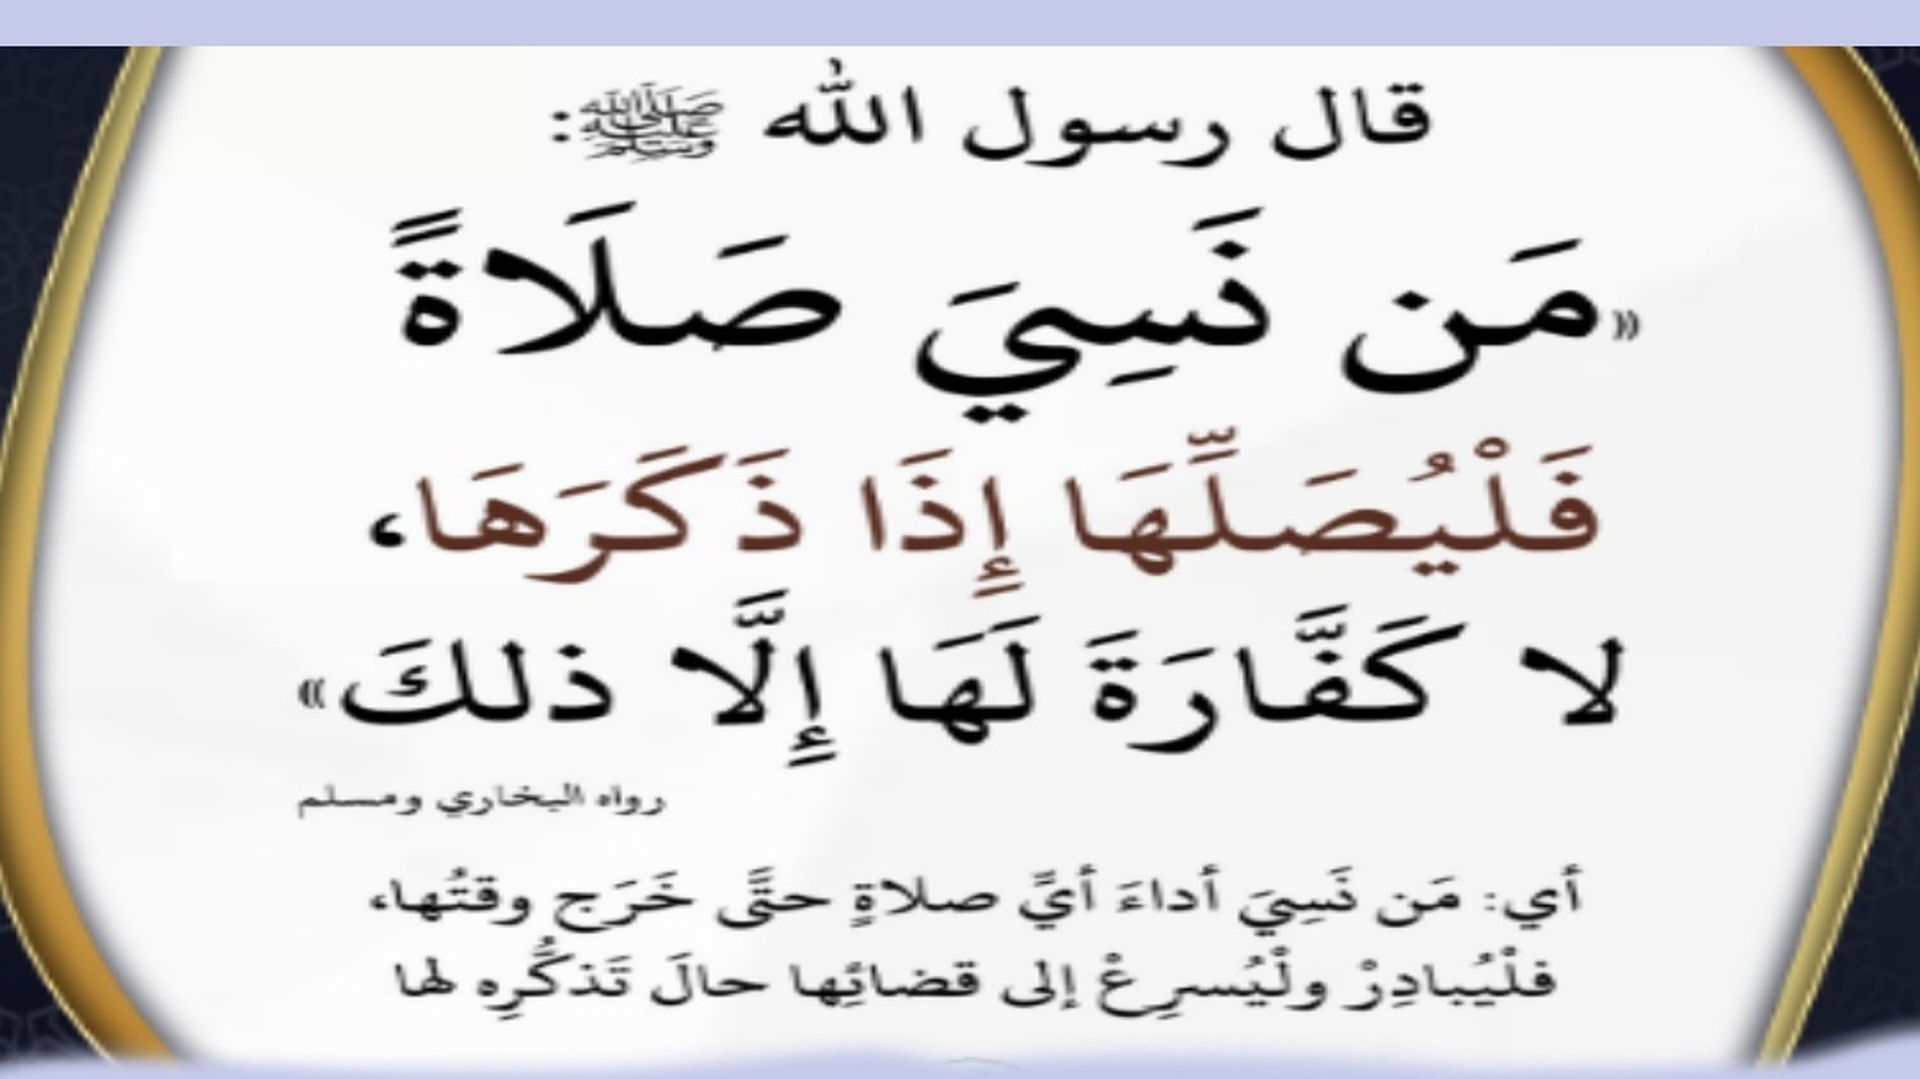 قال رسول الله ﷺ:
«مَن نَسِيَ صَلَاةً
فَلْيُصَلِّهَا إِذَا ذَكَرَهَا،
لا كَفَّارَةَ لَهَا إِلَّا ذلكَ»
رواه البخاري ومسلم
أي: مَن نَسِيَ أداءَ أيِّ صلاةٍ حتَّى خَرَج وقتُها،
فلْيُبادِرْ ولْيُسرِعْ إلى قضائِها حالَ تَذكُّرِه لها